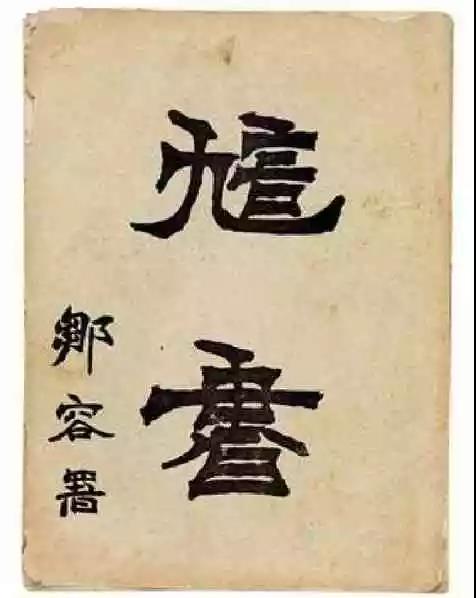 訄書
鄒容署